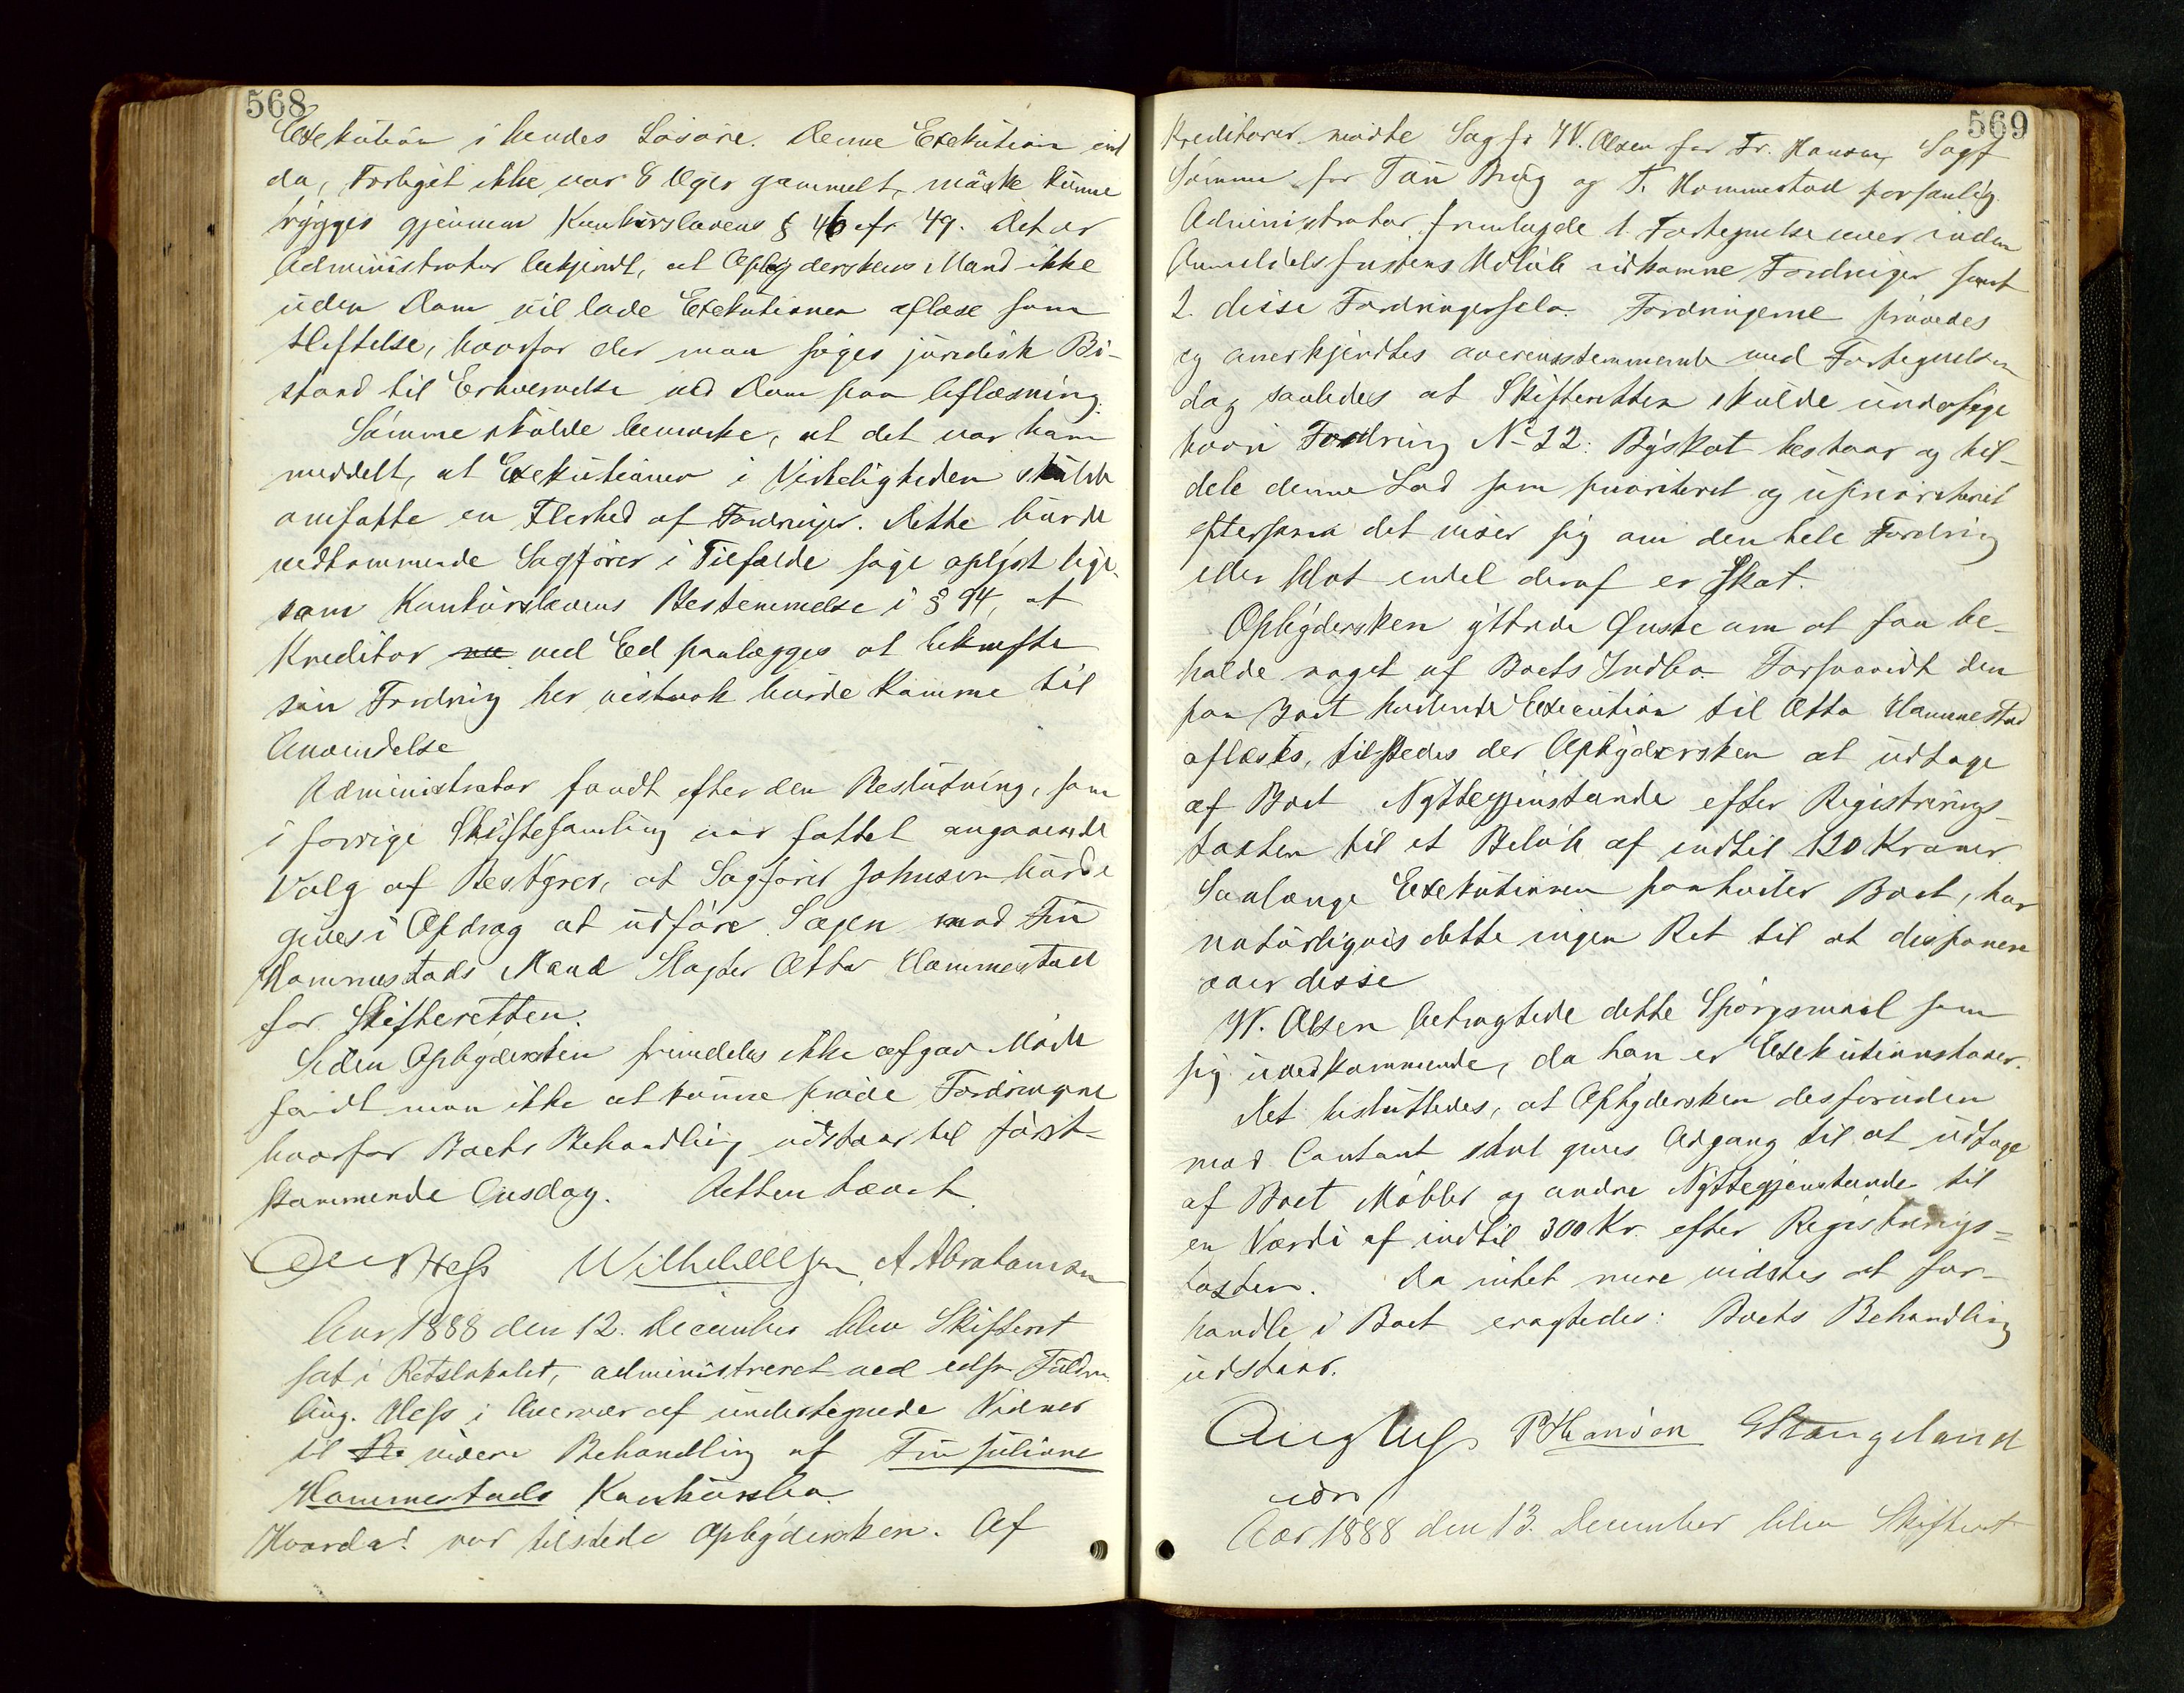 568
Exekution i hendes Løsøre. Denne Exekution end
da, Forliget ikke var 8 Uger gammelt, maaske kunne
rygges gjennem Konkurslovens § 46 cfr 49. Det er
Administrator bekjendt, at Opbyderskens Mand ikke
uden Dom vil lade Exekutionen aflæse som
Heftelse, hvorfor der maa søges juridisk Bi-
stand til Erhvervelse ved Dom paa Aflæsning.
Sømme skulde bemærke, at det var ham
meddelt, at Exekutionen i Virkeligheden skulde
omfatte en Flerhed af Fordringer. Dette burde
vedkommende Sagfører i Tilfælde søge oplyst lige-
som Konkurslovens Bestemmelse i § 94, at
Kreditor ved Ed paalægges at bekræfte
sin Fordring her vistnok burde komme til
Anvendelse
Administrator fandt efter den Beslutning, som
i forrige Skiftesamling var fattet angaaende
Valg af Bestyrer, at Sagfører Johnsen burde
gives i Opdrag at udføre Sagen mod Fru
Hommestads Mand Slagter Otto Hommestad
for Skifteretten.
Siden Opbydersken fremdeles ikke afgav Møde
fandt man ikke at kunne prøve Fordringerne
hvorfor Boets Behandling udstaar til først-
kommende Onsdag. Retten hævet
Aug Hess Wilh Ellefsen A Abrahamsen
Aar 1888 den 12. December blev Skifteret
sat i Retslokalet, administreret ved edsv. Fuldm.
Aug. Hess i Overvær af undertegnede Vidner
til videre Behandling af Fru Juliane
Hommestads Konkursbo.
Hvorda! var tilstede Opbydersken. Af
569
Kreditorer mødte Sagfr W. Olsen for Fr. Hanson, Sagf
Sømme for Tou Brug og T. Hommestad personlig.
Administrator fremlagde 1. Fortegnelse over inden
Anmeldelsfristens Udløb indkomne Fordringer samt
2. disse Fordringer selv. Fordringerne prøvedes
og anerkjendtes overensstemmende med Fortegnelsen
dog saaledes at Skifteretten skulde undersøge
hvori Fordring No 22: Byskat bestaar og til-
dele denne Lod som prioriteret og uprioriteret
eftersom det viser sig om den hele Fordring
eller blot endel deraf er Skat.
Opbydersken yttrede Ønske om at faa be-
holde noget af Boets Indbo. Forsaavidt den
paa Boet hvilende Execution til Otto Hommestad
aflæses, tilstedes der Opbydersken at udtage
af Boet Nyttegjenstande efter Registrerings-
taxten til et Beløb af indtil 120 Kroner
Saalænge Exekutionen paahviler Boet, har
naturligvis dette ingen Ret til at disponere
over disse
W. Olsen betragtede dette Spørgsmaal som
sig uvedkommende, da han er Exekutionshaver.
Det besluttedes, at Opbydersken desforuden
mod Contant skal gives Adgang til at udtage
af Boet Møbler og andre Nyttegjenstande til
en Værdi af indtil 300 Kr. efter Registrerings=
taxten. Da intet mere vidstes at for-
handle i Boet eragtedes: Boets Behandling
udstaar.
Aug Hess P Hansen E Stangeland
Aar 1888 den 13. December blev Skifteret